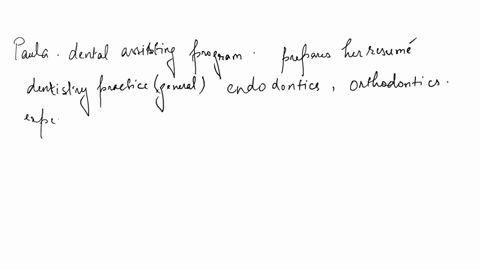 Paula. dental assisting program. prepares her resumé
dentistry practice (general) endodontics, orthodontics.
expe